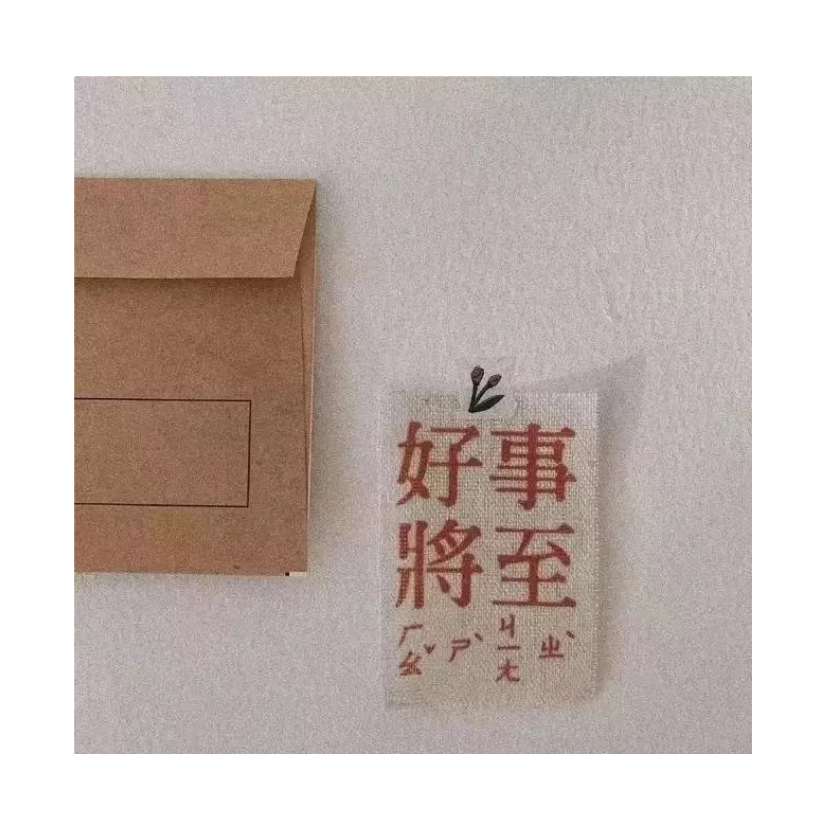 好事
將至
ㄏㄠˇ ㄕˋ ㄐㄧㄤ ㄓˋ